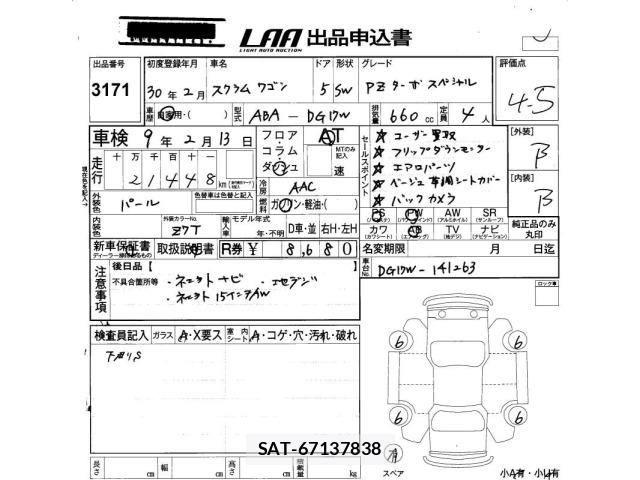 LAA 出品申込書
LIGHT AUTO AUCTION
出品番号 初度登録年月 車名 ドア 形状 グレード 評価点
3171 30年 2月 スクラム ワゴン 5 SW PZ ターボ スペシャル 4-5
車歴 自家用・( ) 型式 ABA - DG17W 排気量 660 cc 定員 4 人
車検 9年 2月 13日 フロア コラム ダッシュ AT MTのみ記入 速
セールスポイント
★ ユーザー買取
★ フリップダウンモニター
★ エアロパーツ
★ ベージュ 革調シートカバー
★ バックカメラ
[外装] B
[内装] B
現在色を記入
走行 十 万 千 百 十 一
2 1 4 4 8 km
冷房 AAC
外装色 パール 色替車は色替と記入 燃料 ガソリン・軽油・( )
内装色 外装カラーNo. Z7T 輸入車 モデル年式 年・不明 D車・並 右H・左H
PS PW AW SR
(パワステ) (パワーウィンドウ) (アルミホイル) (サンルーフ)
カワ AB TV ナビ
(カワシート) (エアーバッグ) (テレビ) (ナビゲーション)
純正品のみ丸印
新車保証書 取扱説明書 R券 ¥ 8,680
ディーラー捺印あるもの
名変期限 月 日迄
車台No. DG17W-141263
注意事項 後日品【 】
不具合箇所等・ネエットナビ
・ネエット 15インチAW
ロック車
検査員記入 ガラス A・X要ス 室内シート A・コゲ・穴・汚れ・破れ
下廻りS
6 6
6 6
SAT-67137838
長さ cm 幅 cm 高さ cm 積載量 kg
有 スペア 小A有・小U有